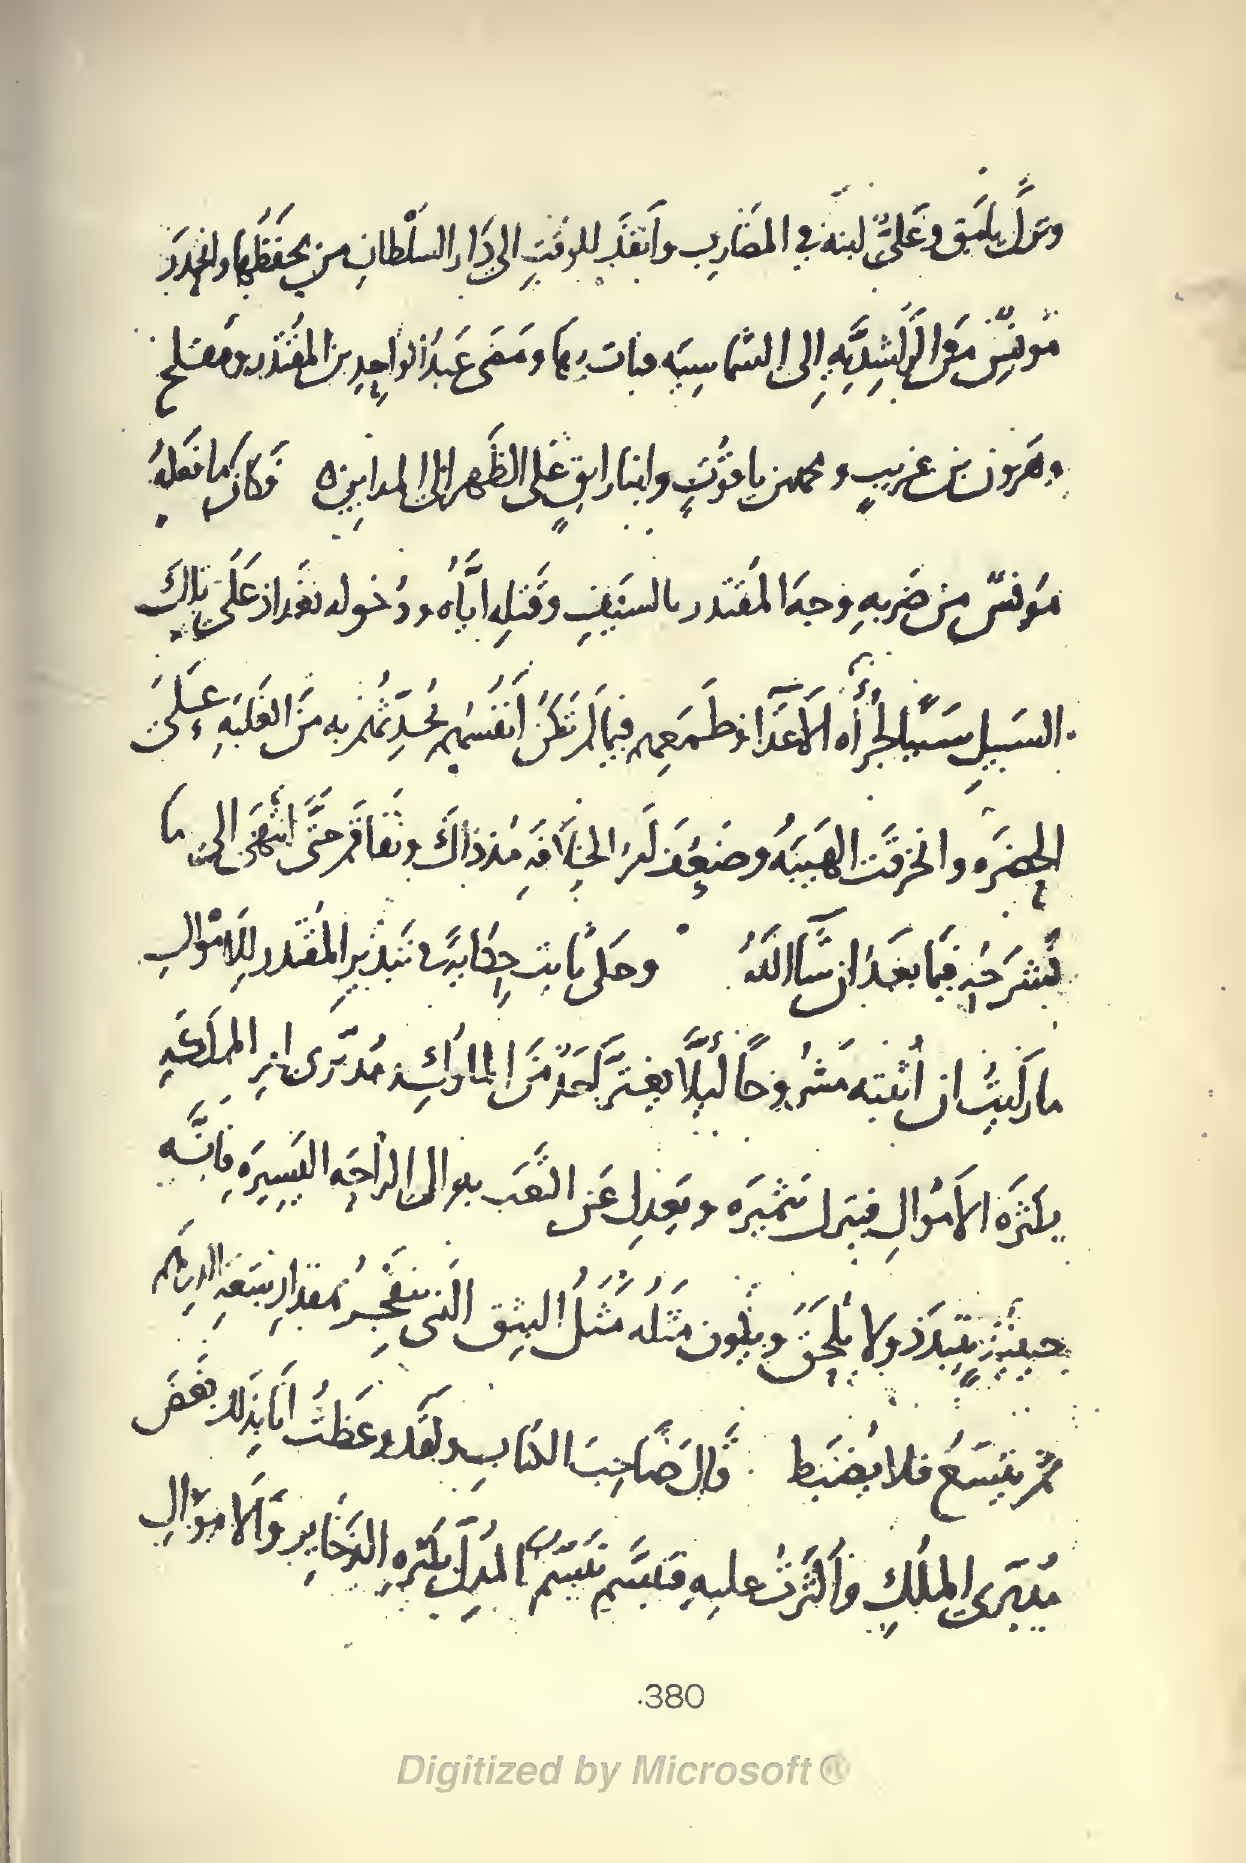 ونزل يلبق وعلىّ ابنه فى المضارب وانفذ للوقت الى دَار السلطان من يحفظها وانحدر
مونس مع الراشديّه إلى الشماسيه فبات بها ومضى عبد الواحد بن المقتدر ومفلح
وهرون بن غريب ومحمد بن ياقوت وابنا رايق على الظهر الى المداين ه فكان ما فعله
مونس من ضربه وجه المقتدر بالسيف وقتله اياه ودخوله بغداذ على تلك
السبيل سببا لجرأه الاعدآ وطمعهم فيما لم تكن انفسهم تحدّثهم به من الغلبه على
الحضره وانخرقت الهيبه وضعف امر الخلافه مذ ذاك وتفاقم حتّى انتهى الى ما
نشرحه فيما بعد ان شآ الله وحكى ثابت حكايةً فى تبذير المقتدر للاموال
ما رايت ان اثبته مشروحًا ليلّا يغترّ احد من الملوك ومدبّرى امر المملكه
بكثره الاموال فيترك تثميره ويعدل عن التعب به الى الراحه اليسيره فانّه
حينئذ يتبدد ولا يلحق ويكون مثله مثل البثق الذى ينفجر بمقدار سعه الدرهم
ثم يتسع فلا يضبط قال صاحب الكتاب ولقد وعظت انا بذلك بعض
مدبّرى الملك واكثرت عليه فتبسّم تبسّم المدلّ بكثره الذخاير والاموال
380
Digitized by Microsoft ®